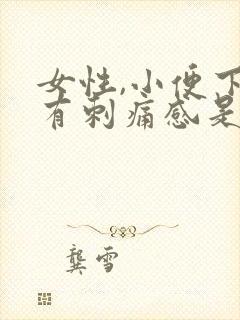 女性,小便下
有刺痛感是
龚雪